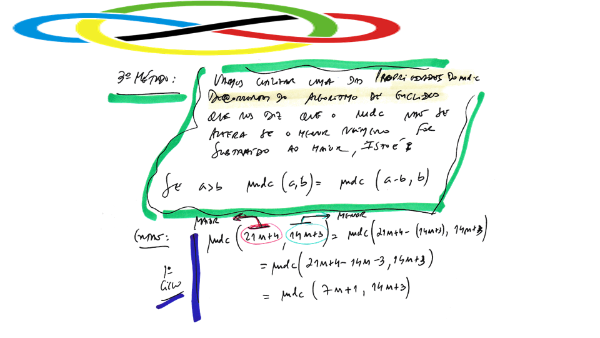 3º MÉTODO:
VAMOS UTILIZAR UMA DAS PROPRIEDADES DO MDC
DECORRENTES DO ALGORITMO DE EUCLIDES
QUE NOS DIZ QUE O MDC NÃO SE
ALTERA SE O MENOR NÚMERO FOR
SUBTRAÍDO AO MAIOR, ISTO É:
SE a>b mdc (a,b) = mdc (a-b, b)
MAIOR MENOR
ENTÃO: mdc (21m+4, 14m+3) = mdc (21m+4 - (14m+3), 14m+3)
= mdc (21m+4-14m-3, 14m+3)
1º
CICLO
= mdc (7m+1, 14m+3)